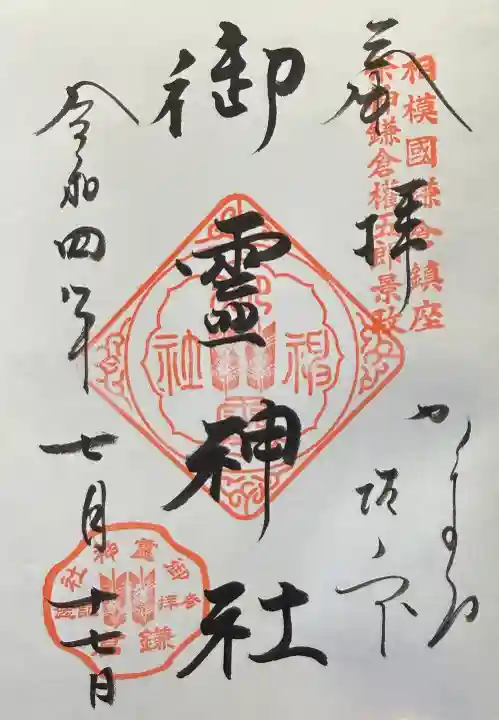 相模國鎌倉鎮座
祭神鎌倉權五郎景政
奉拝
かまくら
坂ノ下
御霊神社
令和四年七月十七日
御靈神社
参拝記念
鎌倉